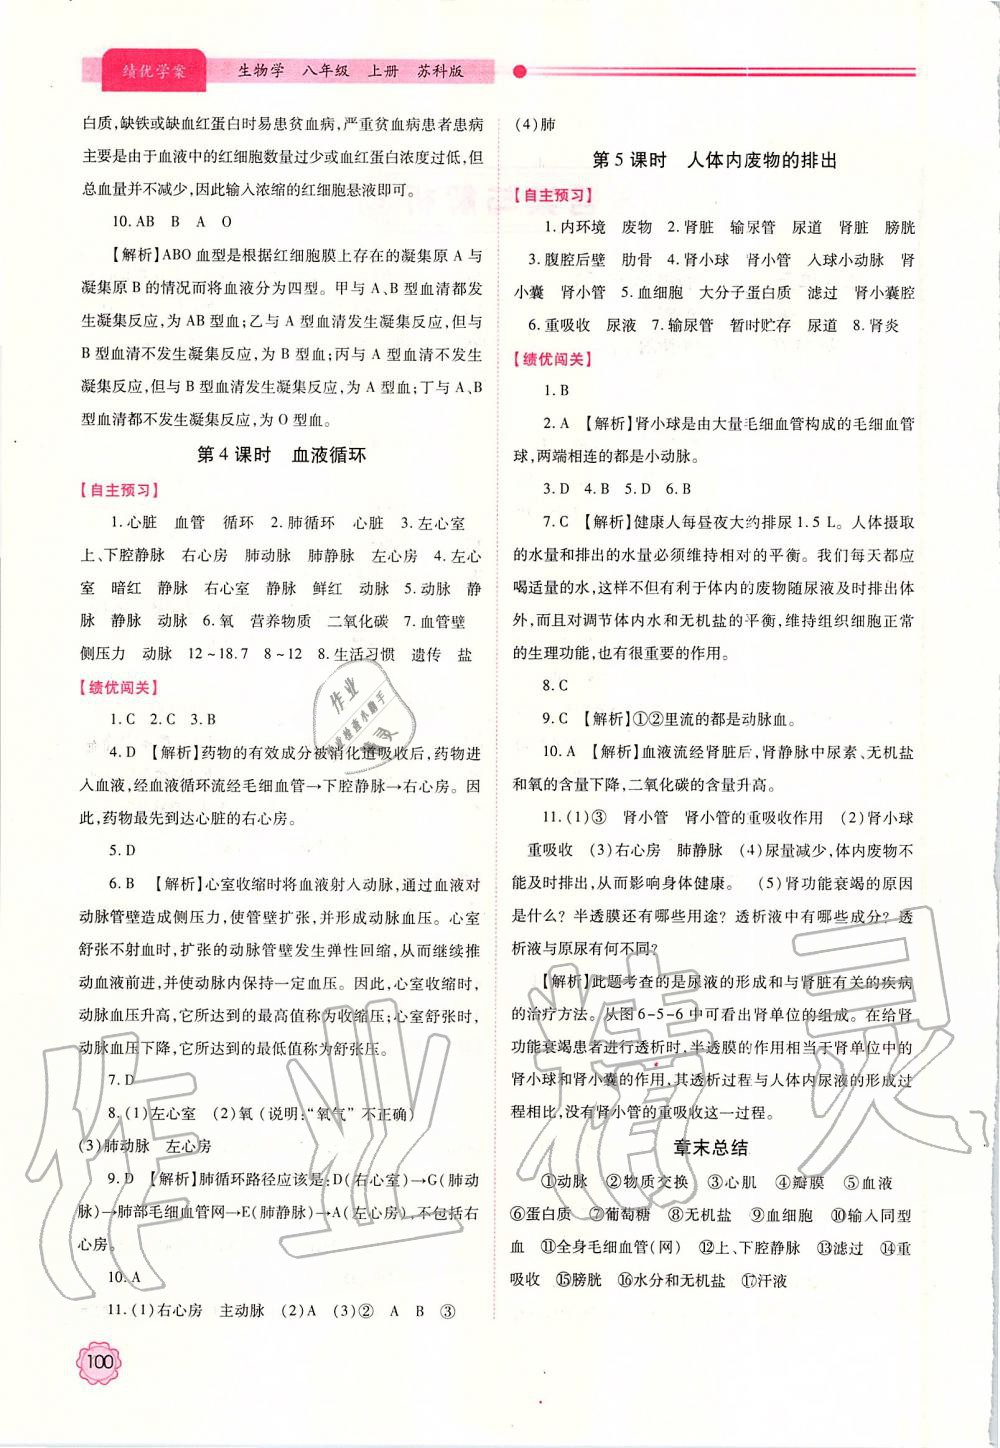 绩优学案 生物学 八年级 上册 苏科版
白质,缺铁或缺血红蛋白时易患贫血病,严重贫血病患者患病
主要是由于血液中的红细胞数量过少或血红蛋白浓度过低,但
总血量并不减少,因此输入浓缩的红细胞悬液即可。
10. AB B A O
【解析】ABO 血型是根据红细胞膜上存在的凝集原 A 与
凝集原 B 的情况而将血液分为四型。甲与 A、B 型血清都发
生凝集反应,为 AB 型血;乙与 A 型血清发生凝集反应,但与
B 型血清不发生凝集反应,为 B 型血;丙与 A 型血清不发生
凝集反应,但与 B 型血清发生凝集反应,为 A 型血;丁与 A、B
型血清都不发生凝集反应,为 O 型血。
第 4 课时 血液循环
【自主预习】
1. 心脏 血管 循环 2. 肺循环 心脏 3. 左心室
上、下腔静脉 右心房 肺动脉 肺静脉 左心房 4. 左心
室 暗红 静脉 右心室 静脉 鲜红 动脉 5. 动脉 静
脉 静脉 动脉 6. 氧 营养物质 二氧化碳 7. 血管壁
侧压力 动脉 12~18.7 8~12 8. 生活习惯 遗传 盐
【绩优闯关】
1. C 2. C 3. B
4. D 【解析】药物的有效成分被消化道吸收后,药物进
入血液,经血液循环流经毛细血管→下腔静脉→右心房。因
此,药物最先到达心脏的右心房。
5. D
6. B 【解析】心室收缩时将血液射入动脉,通过血液对
动脉管壁造成侧压力,使管壁扩张,并形成动脉血压。心室
舒张不射血时,扩张的动脉管壁发生弹性回缩,从而继续推
动血液前进,并使动脉内保持一定血压。因此,心室收缩时,
动脉血压升高,它所达到的最高值称为收缩压;心室舒张时,
动脉血压下降,它所达到的最低值称为舒张压。
7. D
8. (1)左心室 (2)氧(说明:“氧气”不正确)
(3)肺动脉 左心房
9. D 【解析】肺循环路径应该是:D(右心室)→G(肺动
脉)→肺部毛细血管网→E(肺静脉)→A(左心房),不包括右
心房。
10. A
11. (1)右心房 主动脉 (2)A (3)② A B ③
(4)肺
第 5 课时 人体内废物的排出
【自主预习】
1. 内环境 废物 2. 肾脏 输尿管 尿道 肾脏 膀胱
3. 腹腔后壁 肋骨 4. 肾小球 肾小管 入球小动脉 肾
小囊 肾小管 5. 血细胞 大分子蛋白质 滤过 肾小囊腔
6. 重吸收 尿液 7. 输尿管 暂时贮存 尿道 8. 肾炎
【绩优闯关】
1. B
2. A 【解析】肾小球是由大量毛细血管构成的毛细血管
球,两端相连的都是小动脉。
3. D 4. B 5. D 6. B
7. C 【解析】健康人每昼夜大约排尿 1.5 L。人体摄取
的水量和排出的水量必须维持相对的平衡。我们每天都应
喝适量的水,这样不但有利于体内的废物随尿液及时排出体
外,而且对调节体内水和无机盐的平衡,维持组织细胞正常
的生理功能,也有很重要的作用。
8. C
9. C 【解析】①②里流的都是动脉血。
10. A 【解析】血液流经肾脏后,肾静脉中尿素、无机盐
和氧的含量下降,二氧化碳的含量升高。
11. (1)③ 肾小管 肾小管的重吸收作用 (2)肾小球
重吸收 (3)右心房 肺静脉 (4)尿量减少,体内废物不
能及时排出,从而影响身体健康。 (5)肾功能衰竭的原因
是什么? 半透膜还有哪些用途? 透析液中有哪些成分? 透
析液与原尿有何不同?
【解析】此题考查的是尿液的形成和与肾脏有关的疾病
的治疗方法。从图 6-5-6 中可看出肾单位的组成。在给肾
功能衰竭患者进行透析时,半透膜的作用相当于肾单位中的
肾小球和肾小囊的作用,其透析过程与人体内尿液的形成过
程相比,没有肾小管的重吸收这一过程。
章末总结
①动脉 ②物质交换 ③心肌 ④瓣膜 ⑤血液
⑥蛋白质 ⑦葡萄糖 ⑧无机盐 ⑨血细胞 ⑩输入同型
血 ⑪全身毛细血管(网) ⑫上、下腔静脉 ⑬滤过 ⑭重
吸收 ⑮膀胱 ⑯水分和无机盐 ⑰汗液
100
作业精灵